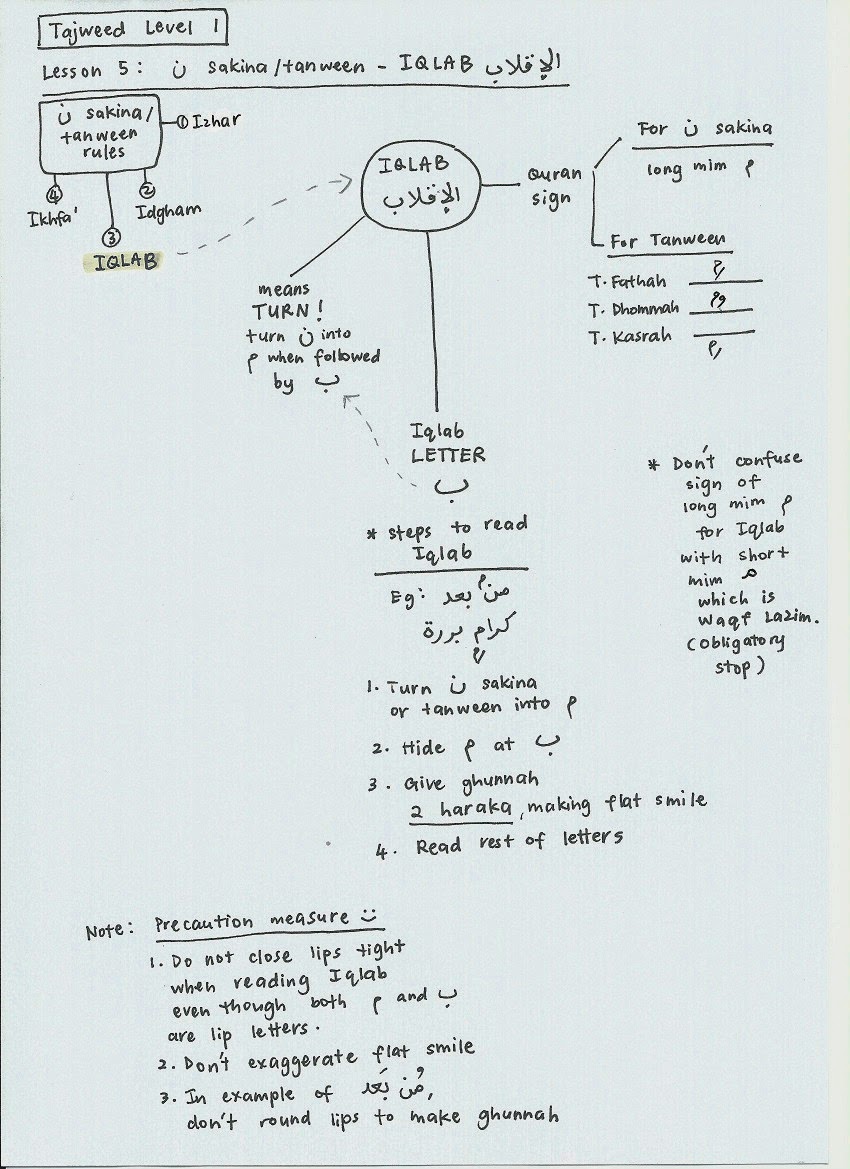 Tajweed Level 1
Lesson 5: ن sakina/tanween - IQLAB الإقلاب
ن sakina/
tanween
rules
① Izhar
② Idgham
③ IQLAB
④ Ikhfa'
IQLAB
الإقلاب
Quran
sign
For ن sakina
long mim م
For Tanween
T. Fathah
T. Dhommah
T. Kasrah
means
TURN!
turn ن into
م when followed
by ب
Iqlab
LETTER
ب
* steps to read
Iqlab
Eg: منۢ بعد
كرامۭ بررة
1. Turn ن sakina
or tanween into م
2. Hide م at ب
3. Give ghunnah
2 haraka, making flat smile
4. Read rest of letters
* Don't confuse
sign of
long mim م
for Iqlab
with short
mim مـ
which is
Waqf Lazim.
(obligatory
stop)
Note: Precaution measure ت
1. Do not close lips tight
when reading Iqlab
even though both م and ب
are lip letters.
2. Don't exaggerate flat smile
3. In example of مُن بَعد,
don't round lips to make ghunnah